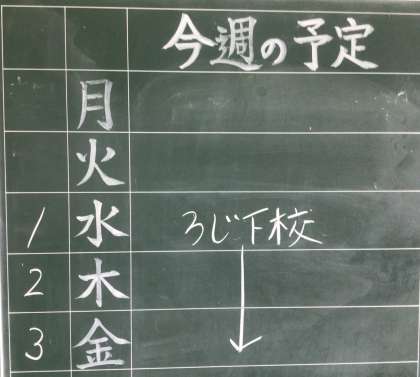 今週の予定
月
火
1 水 3じ下校
2 木
3 金